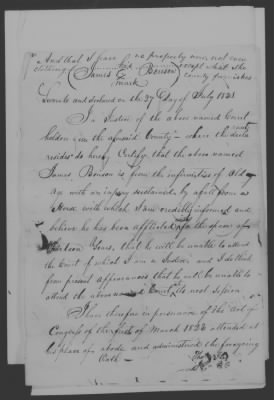 And that I have no property now, not even
clothing except what the
James his mark Benson county furnishes
Sworn to and declared on the 27 Day of July 1821
I a Justice of the above named Court
holden in the aforesaid County where the
resides do hereby Certify, that the above named
James Benson is from the infirmities of Old
Age with an injury sustained by a fall from a
Horse with which I am credibly informed and
believe he has been afflicted for the space of
Years, that he will be unable to attend
the Court of which I am a Justice and I do think
from present appearances that he will be unable to
attend the above named Court its next Session
I have therefore in pursuance of the Act of
Congress of the first of March 1823 attended at
his place of abode and administered the foregoing
Oath